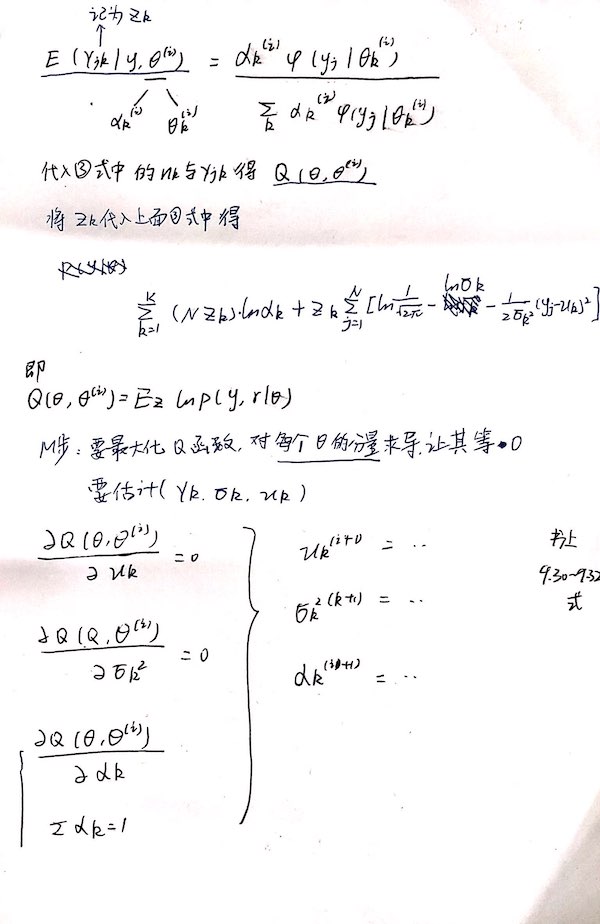 记为 Zk
E(γjk|y,θ^(i)) = αk^(i) φ(yj|θk^(i)) / Σk αk^(i) φ(yj|θk^(i))
αk^(i) θk^(i)
代入③式中的 nk 与 γjk 得 Q(θ,θ^(i))
将 Zk 代入上面①式中得
Σ_{k=1}^{K} (N Zk)·lnαk + Zk Σ_{j=1}^{N} [ln 1/√2π - lnσk - 1/2σk² (yj-uk)²]
即
Q(θ,θ^(i)) = Ez lnp(y,r|θ)
M步: 要最大化 Q 函数, 对每个 θ 的分量求导, 让其等·0
要估计(γk. σk. uk)
∂Q(θ,θ^(i)) / ∂uk = 0
∂Q(Q,θ^(i)) / ∂σk² = 0
∂Q(θ,θ^(i)) / ∂αk
Σαk=1
uk^(i+1) = ..
σk²^(k+1) = ..
αk^(i+1) = ..
书上
9.30~9.32
式